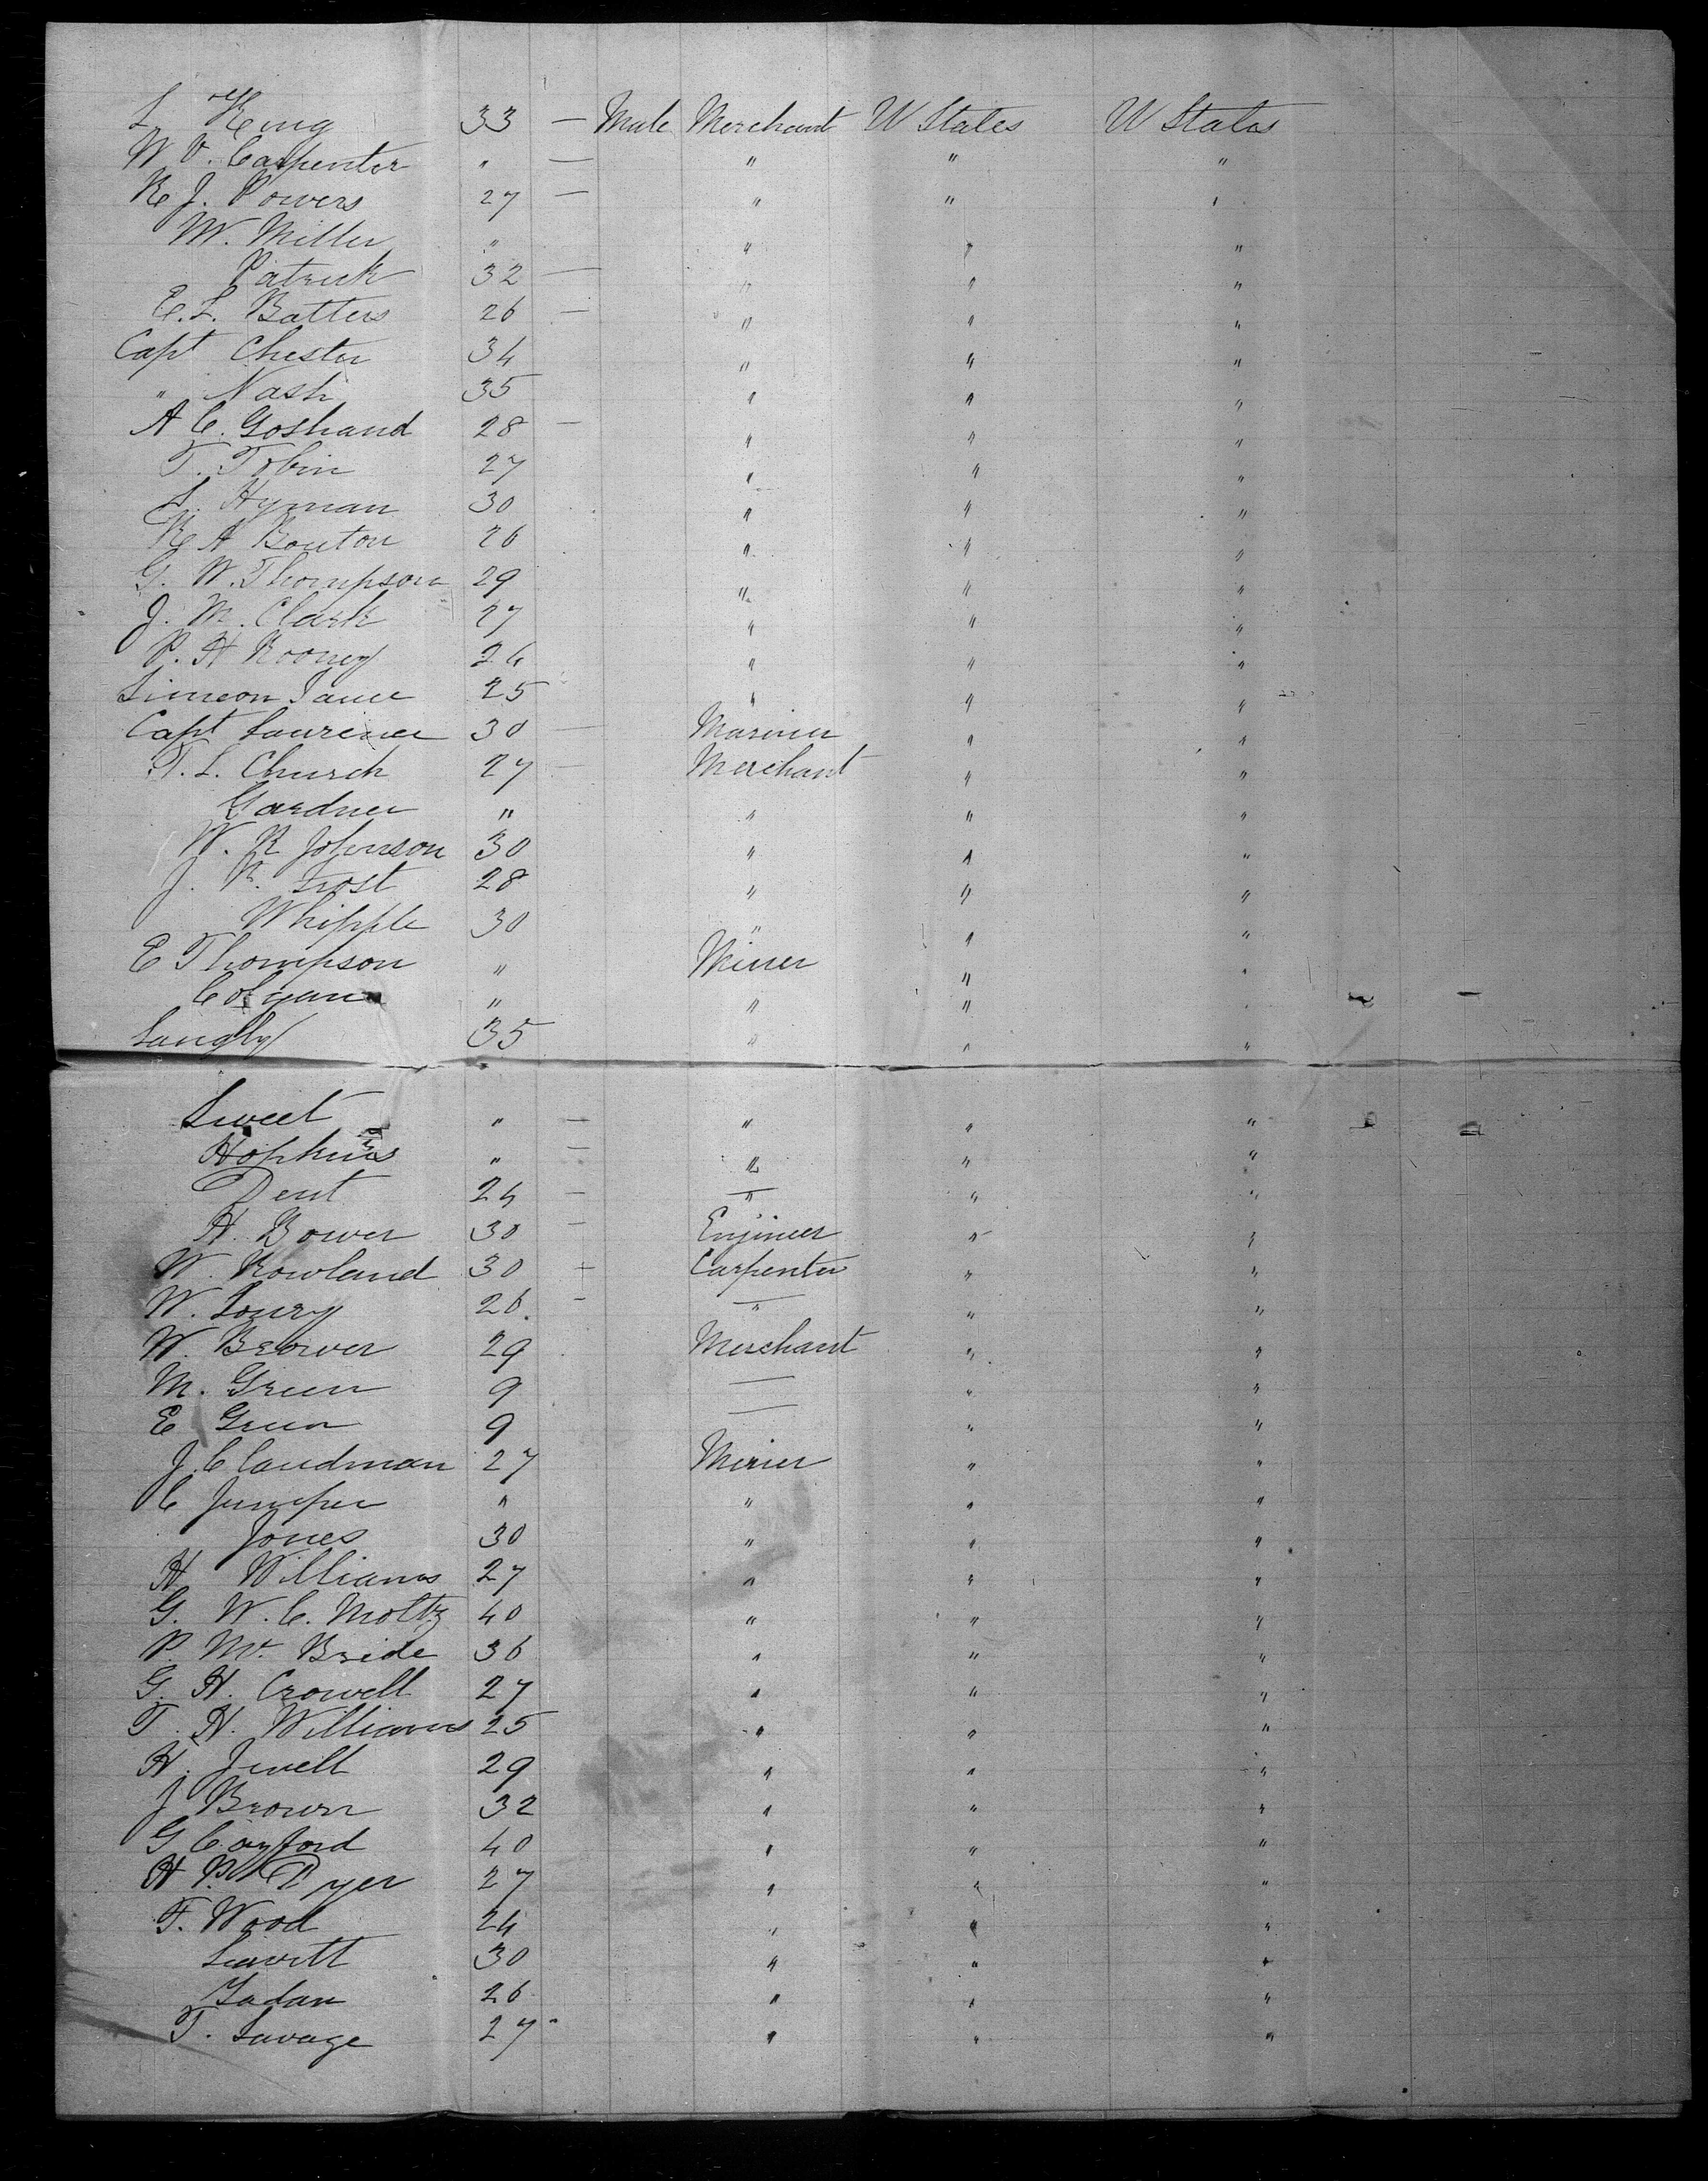 L. King 33 — Male Merchant U States U States
W V. Carpenter " — " " "
R J. Powers 27 — " " "
W. Miller " " " "
Patrick 32 — " " "
C. L. Batters 26 — " " "
Capt Chester 34 " " "
" Nash 35 " " "
A C. Goshand 28 — " " "
T. Tobin 27 " " "
S. Hyman 30 " " "
R A Bouton 26 " " "
G. W. Thompson 29 " " "
J. M. Clark 27 " " "
P. H Rooney 24 " " "
Simeon 25 " " "
Capt Laurence 30 — Mariner " "
T. L. Church 27 — Merchant " "
Gardner " " " "
W. R Johnson 30 " " "
J. R. Frost 28 " " "
Whipple 30 " " "
E Thompson " Miner " "
Colgan " " " "
Langly 35 " " "
Sweet " — " " "
Hopkins " — " " "
Dent 24 — " " "
H. Bower 30 — Engineer " "
W. Rowland 30 — Carpenter " "
W. Loury 26. — " " "
W. Brower 29 Merchant " "
M. Green 9 — " "
E Green 9 — " "
J. C Caudman 27 Miner " "
C Juniper " " " "
Jones 30 " " "
H Williams 27 " " "
G. W. C. Moltz 40 " " "
P. Mc Bride 36 " " "
G. H. Crowell 27 " " "
T. H. Williams 25 " " "
H. Jewell 29 " " "
J Brown 32 " " "
G Cayford 40 " " "
H P. Dyer 27 " " "
T. Wood 24 " " "
Leavitt 30 " " "
26 " " "
T. Savage 27 " " "